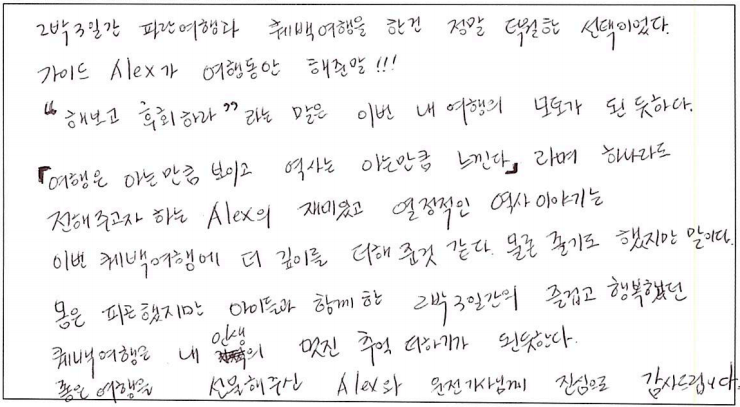 2박3일간 파란여행과 퀘백여행을 한건 정말 탁월한 선택이었다.
가이드 Alex가 여행동안 해준말!!!
"해보고 후회하라" 라는 말은 이번 내 여행의 모토가 된 듯하다.
「여행은 아는만큼 보이고 역사는 아는만큼 느낀다」 라며 하나라도
전해주고자 하는 Alex의 재미있고 열정적인 역사이야기는
이번 퀘백여행에 더 깊이를 더해 준것 같다. 물론 졸기도 했지만 말이다.
몸은 피곤했지만 아이들과 함께 한 2박3일간의 즐겁고 행복했던
퀘백여행은 내 인생의 멋진 추억 더하기가 된듯한다.
좋은여행을 선물해주신 Alex와 운전기사님께 진심으로 감사드립니다.